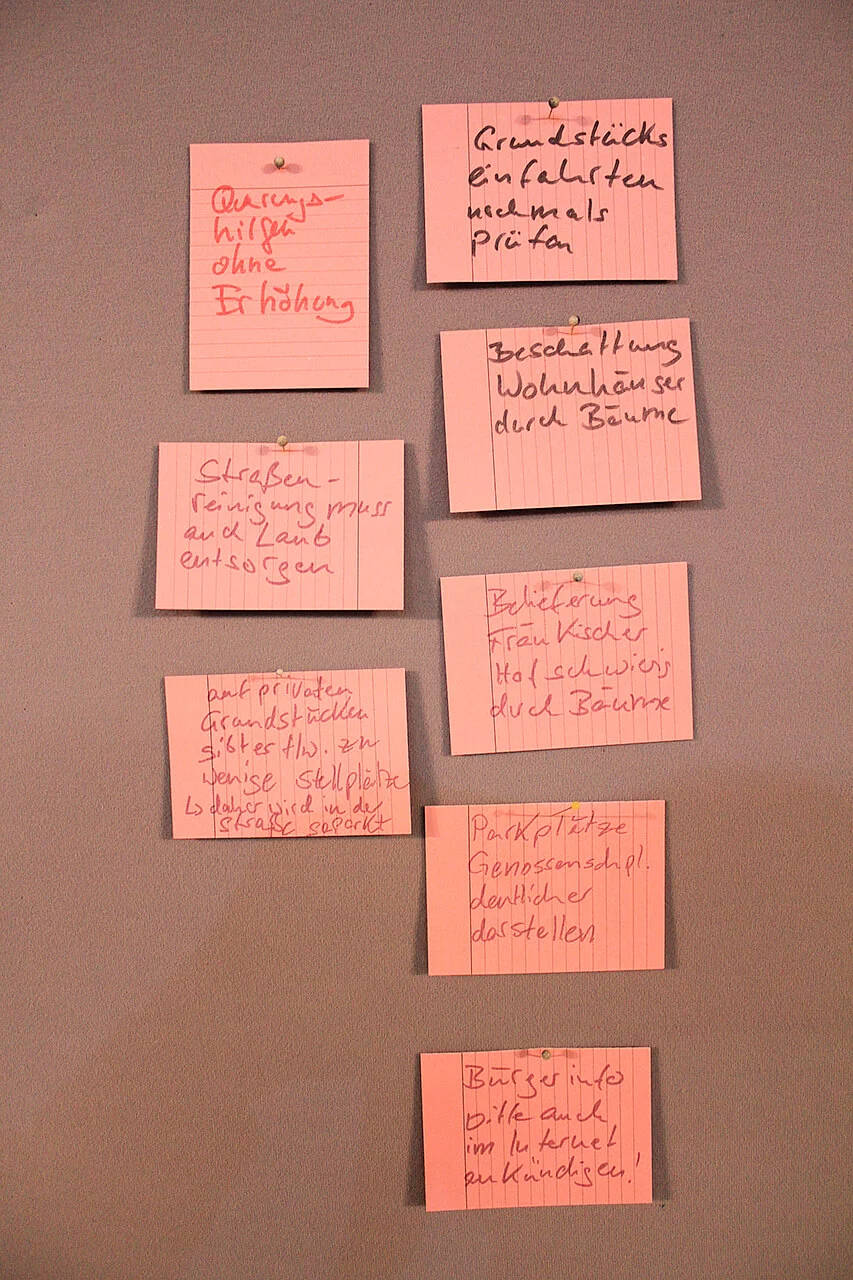 Querungs-
hilfen
ohne
Erhöhung
Straßen-
reinigung muss
auch Laub
entsorgen
auf privaten
Grundstücken
gibt es flw. zu
wenige Stellplätze
↳ daher wird in der
Straße geparkt
Grundstücks
einfahrten
nochmals
prüfen
Beschattung
Wohnhäuser
durch Bäume
Belieferung
Fränkischer
Hof schwierig
durch Bäume
Parkplätze
Genossenschpl.
deutlicher
darstellen
Bürgerinfo
bitte auch
im Internet
ankündigen!